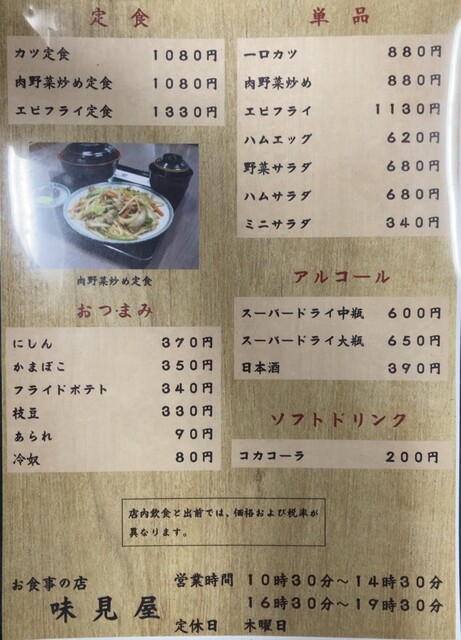 定食
カツ定食 1080円
肉野菜炒め定食 1080円
エビフライ定食 1330円
肉野菜炒め定食
おつまみ
にしん 370円
かまぼこ 350円
フライドポテト 340円
枝豆 330円
あられ 90円
冷奴 80円
単品
一口カツ 880円
肉野菜炒め 880円
エビフライ 1130円
ハムエッグ 620円
野菜サラダ 680円
ハムサラダ 680円
ミニサラダ 340円
アルコール
スーパードライ中瓶 600円
スーパードライ大瓶 650円
日本酒 390円
ソフトドリンク
コカコーラ 200円
店内飲食と出前では、価格および税率が
異なります。
お食事の店
味見屋
営業時間 10時30分〜14時30分
16時30分〜19時30分
定休日 木曜日